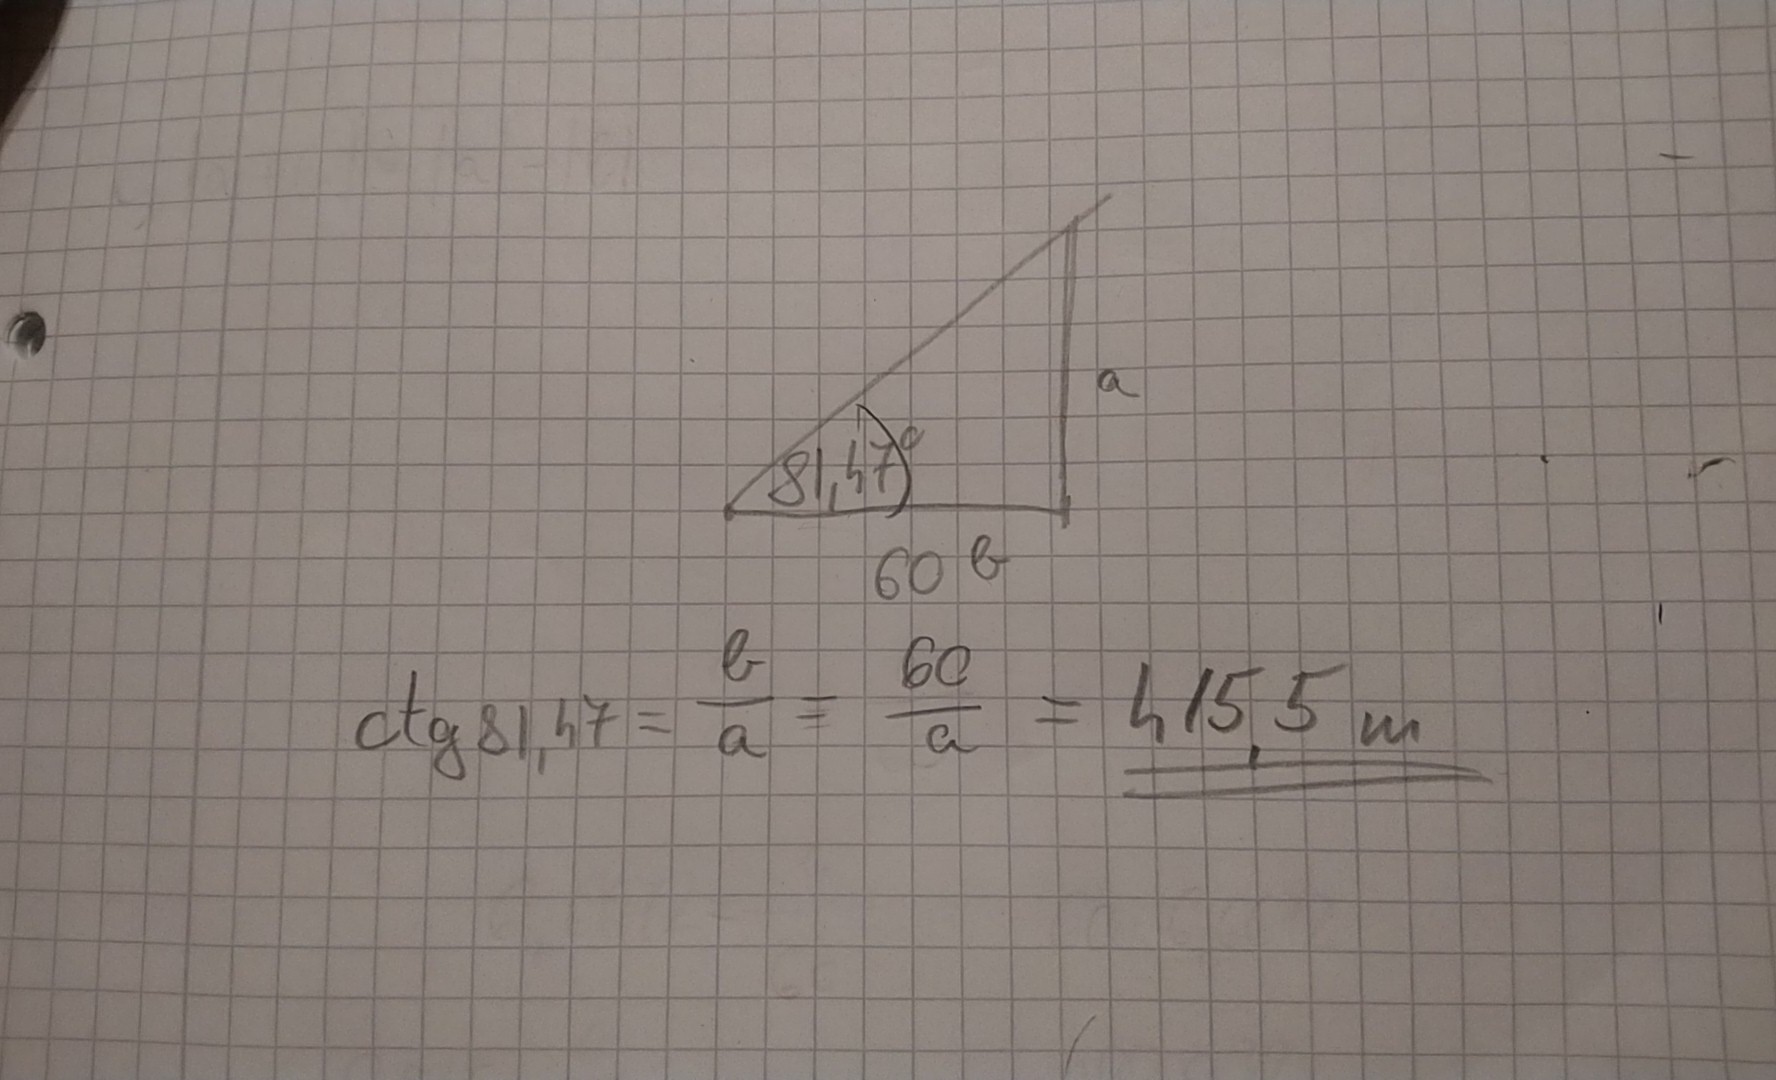 a
81,47°
60 b
ctg 81,47 = b/a = 60/a = 415,5 m